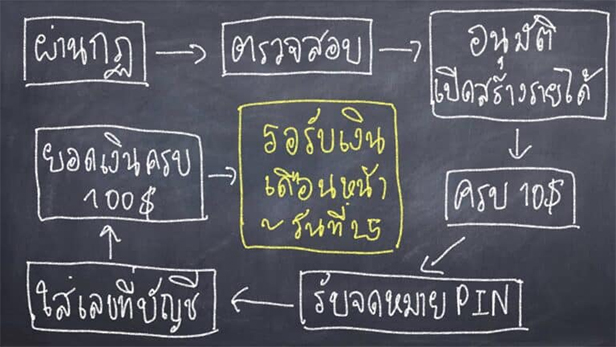 ผ่านกฏ
ตรวจสอบ
อนุมัติ
เปิดสร้างรายได้
ครบ 10$
รับจดหมาย PIN
ใส่เลขที่บัญชี
ยอดเงินครบ
100$
รอรับเงิน
เดือนหน้า
~ วันที่ 25